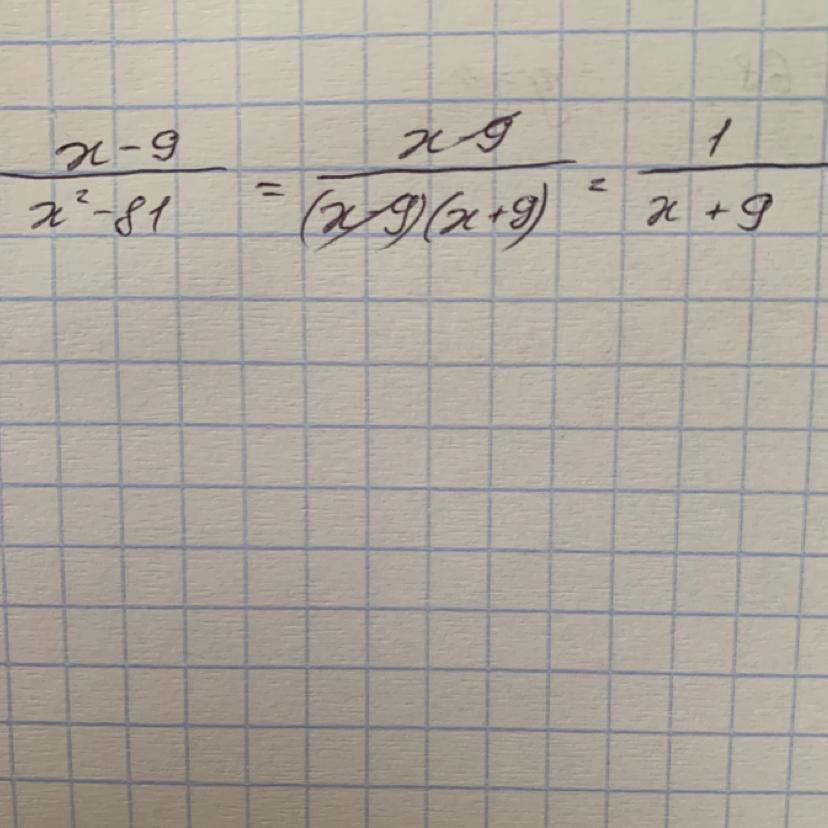 x-9/x²-81 = x-9/(x-9)(x+9) = 1/x+9